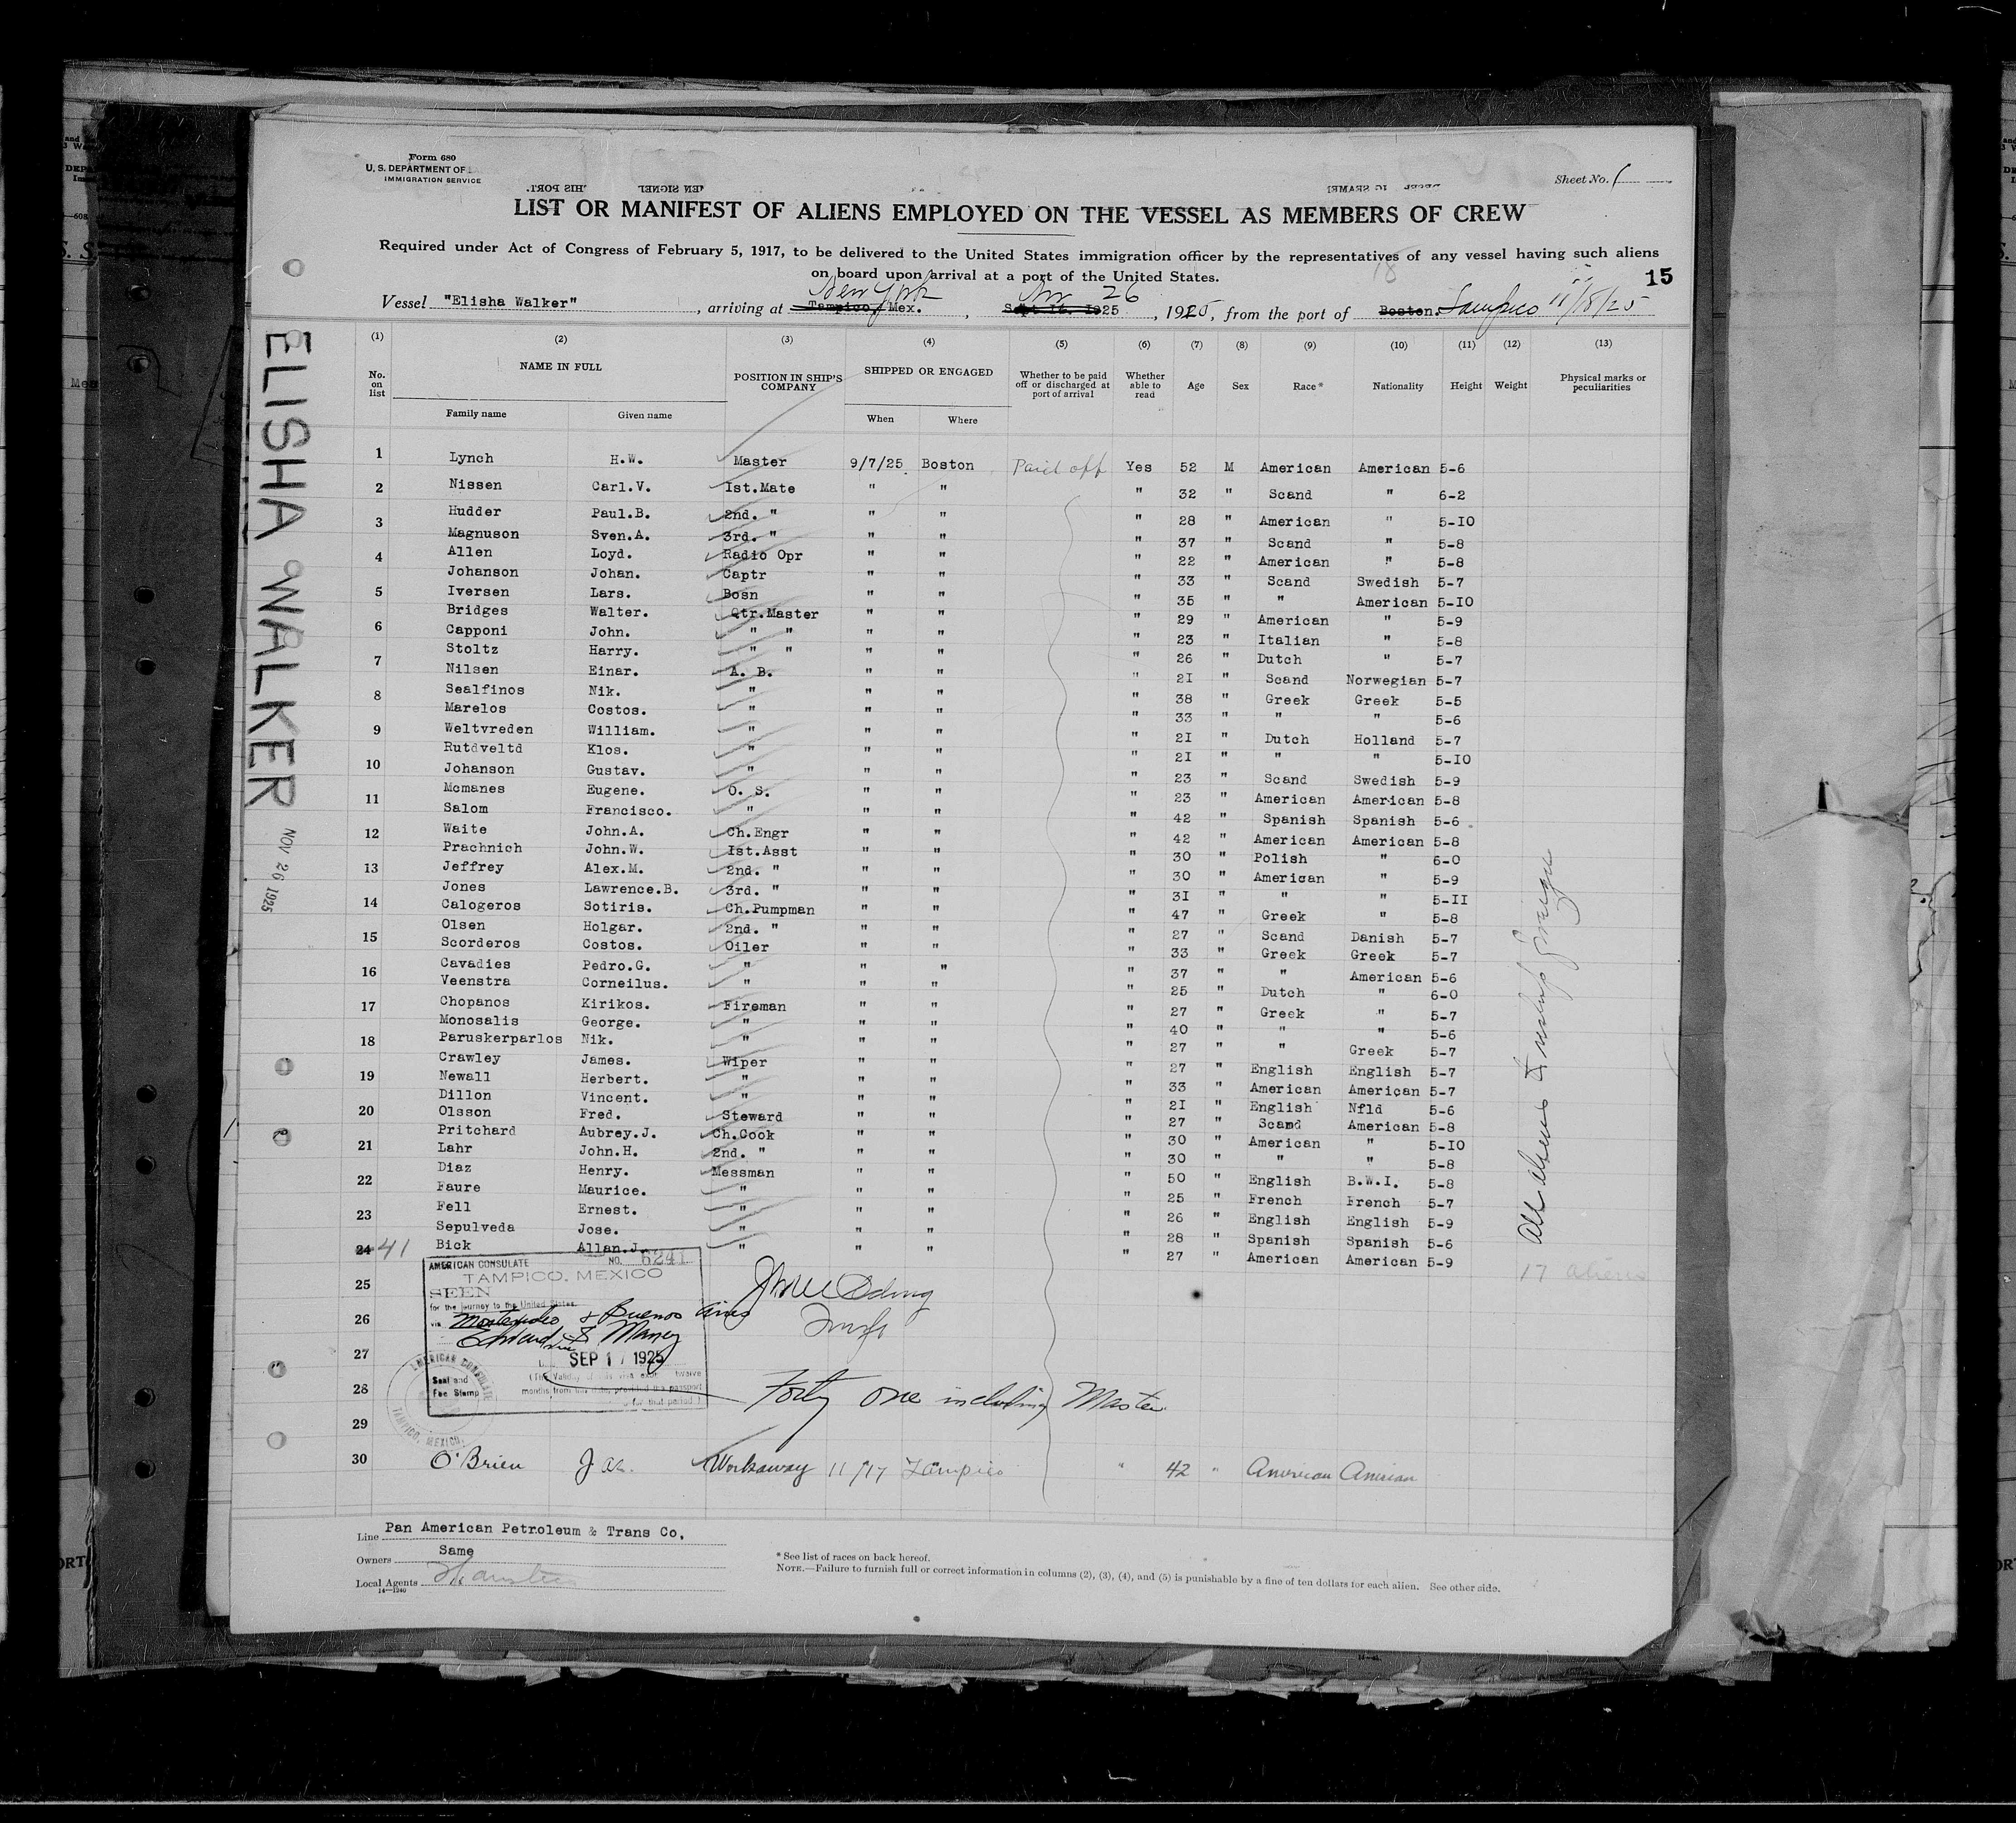 Form 680
U. S. DEPARTMENT OF
IMMIGRATION SERVICE
Sheet No. 1
LIST OR MANIFEST OF ALIENS EMPLOYED ON THE VESSEL AS MEMBERS OF CREW
Required under Act of Congress of February 5, 1917, to be delivered to the United States immigration officer by the representatives of any vessel having such aliens
on board upon arrival at a port of the United States.
18
15
New York Nov 26
Vessel "Elisha Walker", arriving at Tampico, Mex., Sept 16. 1925, 1925, from the port of Boston. Tampico 11/18/25
ELISHA WALKER NOV 26 1925
(1) (2) (3) (4) (5) (6) (7) (8) (9) (10) (11) (12) (13)
No. on list NAME IN FULL POSITION IN SHIP'S COMPANY SHIPPED OR ENGAGED Whether to be paid off or discharged at port of arrival Whether able to read Age Sex Race* Nationality Height Weight Physical marks or peculiarities
Family name Given name When Where
1 Lynch H.W. Master 9/7/25 Boston Paid off Yes 52 M American American 5-6
2 Nissen Carl.V. Ist.Mate " " " 32 " Scand " 6-2
Hudder Paul.B. 2nd. " " " " 28 " American " 5-I0
3 Magnuson Sven.A. 3rd. " " " " 37 " Scand " 5-8
4 Allen Loyd. Radio Opr " " " 22 " American " 5-8
Johanson Johan. Captr " " " 33 " Scand Swedish 5-7
5 Iversen Lars. Bosn " " " 35 " " American 5-I0
Bridges Walter. Qtr.Master " " " 29 " American " 5-9
6 Capponi John. " " " " " 23 " Italian " 5-8
Stoltz Harry. " " " " " 26 " Dutch " 5-7
7 Nilsen Einar. A. B. " " " 2I " Scand Norwegian 5-7
8 Sealfinos Nik. " " " " 38 " Greek Greek 5-5
Marelos Costos. " " " " 33 " " " 5-6
9 Weltvreden William. " " " " 2I " Dutch Holland 5-7
Rutdveltd Klos. " " " " 2I " " " 5-I0
10 Johanson Gustav. " " " " 23 " Scand Swedish 5-9
Mcmanes Eugene. O. S. " " " 23 " American American 5-8
11 Salom Francisco. " " " " 42 " Spanish Spanish 5-6
12 Waite John.A. Ch.Engr " " " 42 " American American 5-8
Prachnich John.W. Ist.Asst " " " 30 " Polish " 6-0
13 Jeffrey Alex.M. 2nd. " " " " 30 " American " 5-9
Jones Lawrence.B. 3rd. " " " " 3I " " " 5-II
14 Calogeros Sotiris. Ch.Pumpman " " " 47 " Greek " 5-8
Olsen Holgar. 2nd. " " " " 27 " Scand Danish 5-7
15 Scorderos Costos. Oiler " " " 33 " Greek Greek 5-7
Cavadies Pedro.G. " " " " 37 " " American 5-6
16 Veenstra Corneilus. " " " " 25 " Dutch " 6-0
17 Chopanos Kirikos. Fireman " " " 27 " Greek " 5-7
Monosalis George. " " " " 40 " " " 5-6
18 Paruskerparlos Nik. " " " " 27 " " Greek 5-7
Crawley James. Wiper " " " 27 " English English 5-7
19 Newall Herbert. " " " " 33 " American American 5-7
Dillon Vincent. " " " " 2I " English Nfld 5-6
20 Olsson Fred. Steward " " " 27 " Scand American 5-8
Pritchard Aubrey.J. Ch.Cook " " " 30 " American " 5-I0
21 Lahr John.H. 2nd. " " " " 30 " " " 5-8
Diaz Henry. Messman " " " 50 " English B.W.I. 5-8
22 Faure Maurice. " " " " 25 " French French 5-7
23 Fell Ernest. " " " " 26 " English English 5-9
Sepulveda Jose. " " " " 28 " Spanish Spanish 5-6
24 41 Bick Allan.J. " " " " 27 " American American 5-9
17 aliens
All aliens
AMERICAN CONSULATE NO. 6241
TAMPICO, MEXICO
25 SEEN
for the journey to the United States
via Montevideo & Buenos Aires
26 Edward S Maney
27 SEP 17 1925
28 Forty one including Master
AMERICAN CONSULATE
Seal and
Fee Stamp
TAMPICO, MEXICO.
29
30 O'Brien Jas. Workaway 11/17 Tampico " 42 " American American
Line Pan American Petroleum & Trans Co.
Owners Same
Local Agents
14—1240
* See list of races on back hereof.
NOTE.—Failure to furnish full or correct information in columns (2), (3), (4), and (5) is punishable by a fine of ten dollars for each alien. See other side.